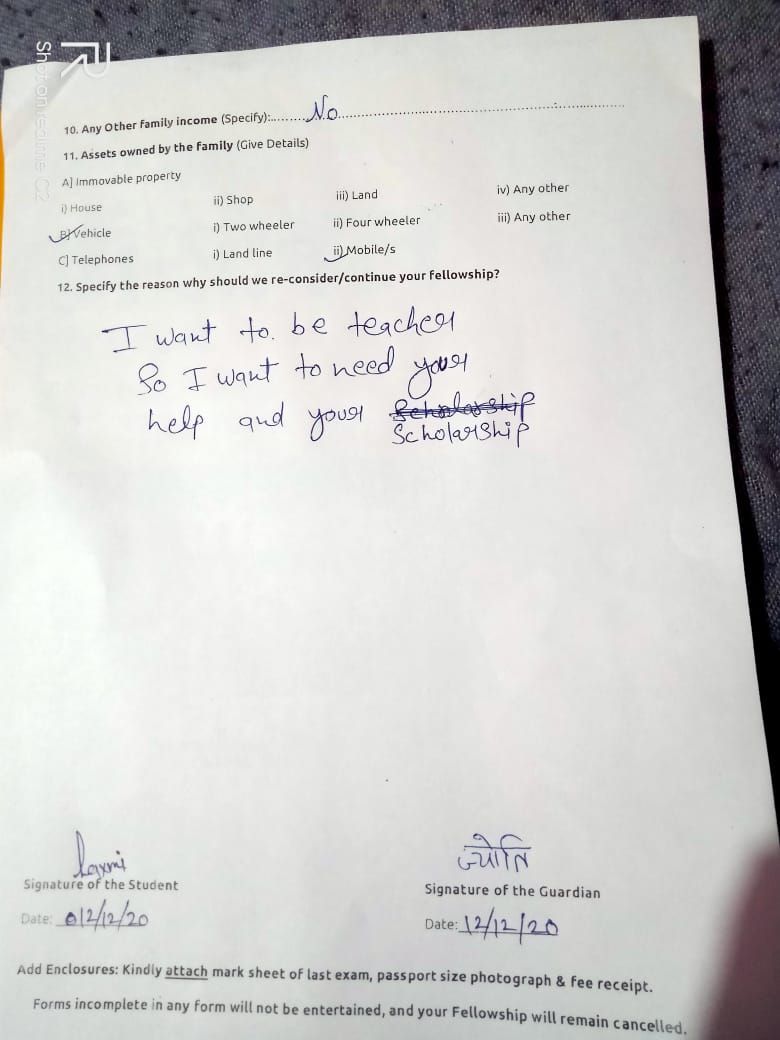 R
Shot on realme C2
10. Any Other family income (Specify):.........No.................................................................
11. Assets owned by the family (Give Details)
A] Immovable property
i) House ii) Shop iii) Land iv) Any other
B] Vehicle i) Two wheeler ii) Four wheeler iii) Any other
C] Telephones i) Land line ii) Mobile/s
12. Specify the reason why should we re-consider/continue your fellowship?
I want to. be teacher
So I want to need your
help and your Scholarship
Scholarship
Laxmi
Signature of the Student
Date: 012/12/20
ज्योति
Signature of the Guardian
Date: 12/12/20
Add Enclosures: Kindly attach mark sheet of last exam, passport size photograph & fee receipt.
Forms incomplete in any form will not be entertained, and your Fellowship will remain cancelled.